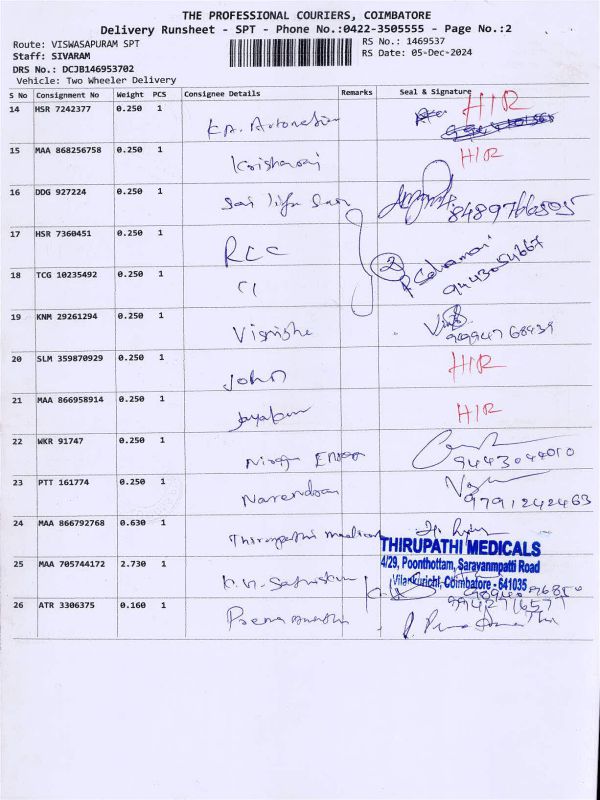 THE PROFESSIONAL COURIERS, COIMBATORE
Delivery Runsheet - SPT - Phone No.:0422-3505555 - Page No.:2
Route: VISWASAPURAM SPT
RS No.: 1469537
Staff: SIVARAM
RS Date: 05-Dec-2024
DRS No.: DCJB146953702
Vehicle: Two Wheeler Delivery
S No Consignment No Weight PCS Consignee Details Remarks Seal & Signature
14 HSR 7242377 0.250 1 HIR
15 MAA 868256758 0.250 1 HIR
16 DDG 927224 0.250 1 8489766595
17 HSR 7360451 0.250 1 RCC 2
18 TCG 10235492 0.250 1 CI 9443054667
19 KNM 29261294 0.250 1
20 SLM 359870929 0.250 1 John HIR
21 MAA 866958914 0.250 1 HIR
22 WKR 91747 0.250 1 9443044010
23 PTT 161774 0.250 1 Narendran 9791242463
24 MAA 866792768 0.630 1 Thirupathi medical
THIRUPATHI MEDICALS
4/29, Poonthottam, Saravanmpatti Road
Vilankurichi, Coimbatore - 641035
25 MAA 705744172 2.730 1
26 ATR 3306375 0.160 1